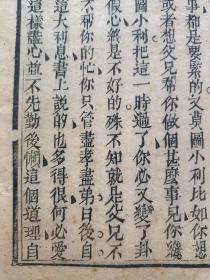 事都是要緊的又莫圖小利比如你想
或者想父兄帮你做個甚麽事兒你纔
圖小利把這一時過了你心又變了卦
假心終是不好的殊不知就是父兄不
去帮你的忙你只管盡孝盡弟日後自
這大利息書上説的也多得很何必愛
這樣虧心並不先勤後懶這個道理自